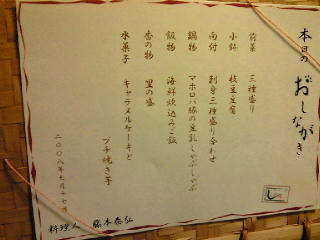 本日の おしながき
前菜 三種盛り
小鉢 枝豆豆腐
向付 刺身三種盛り合わせ
鍋物 マホロバ豚の豆乳しゃぶしゃぶ
飯物 海鮮炊込みご飯
香の物 里の盛
水菓子 キャラメルケーキと
プチ焼き芋
二〇〇八年七月十七日
料理人 藤本